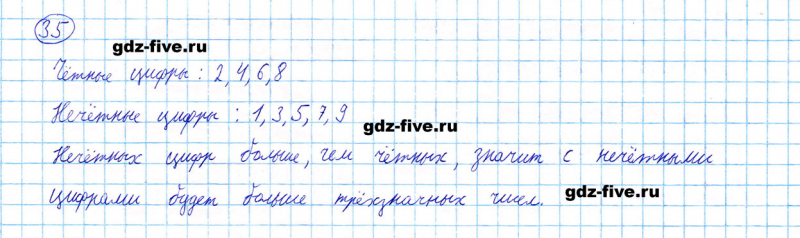 35
gdz-five.ru
Чётные цифры: 2, 4, 6, 8
Нечётные цифры: 1, 3, 5, 7, 9
gdz-five.ru
Нечётных цифр больше, чем чётных, значит с нечётными
цифрами будет больше трёхзначных чисел.
gdz-five.ru